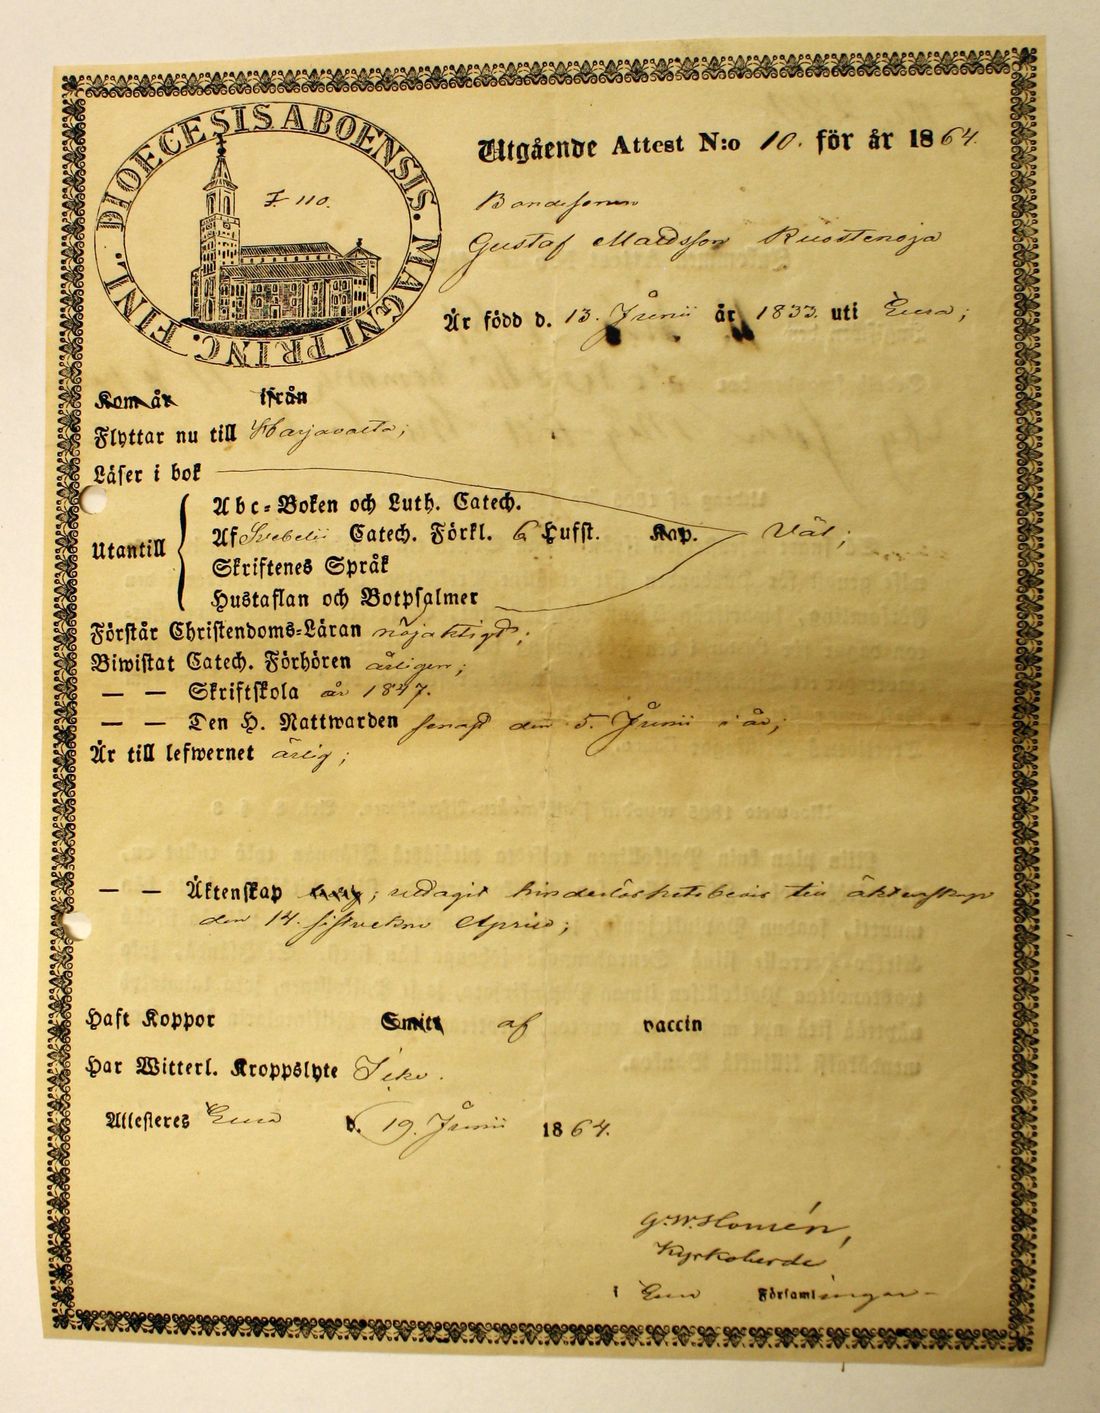 DIOECESIS ABOENSIS. MAGNI PRINC. FINL.
F. 110.
Utgående Attest N:o 10. för år 1864.
Bondesonen
Gustaf Mattsson Ruostenoja
Är född d. 13. Junii år 1833. uti Eura;
Kom år ifrån
Flyttar nu till Harjavalta;
Läser i bok
Abc-Boken och Luth. Catech.
Utantill Af Svebelii Catech. Förkl. 6 Hufst. Kap. Väl;
Skriftenes Språk
Hustaflan och Botpsalmer
Förstår Christendoms-Läran nöjaktigt;
Biwistat Catech. Förhören årligen;
— — Skriftskola år 1847.
— — Den H. Nattwarden senast den 5. Junii i år;
Är till lefwernet ärlig;
— — Äktenskap ledig; uttagit hinderlöshetsbevis till äktenskap
den 14. sistvekne April;
Haft Koppor Smitt af vaccin
Har Witterl. Kroppslyte Icke.
Attesteres Eura d. 19. Junii 1864.
G. W. Homén,
Kyrkoherde
i Eura Församlingar